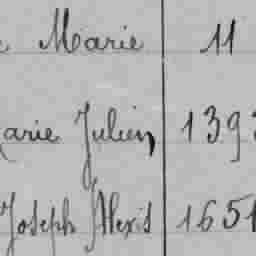 Marie 11
arie Julien 139
Joseph Alexis 1651